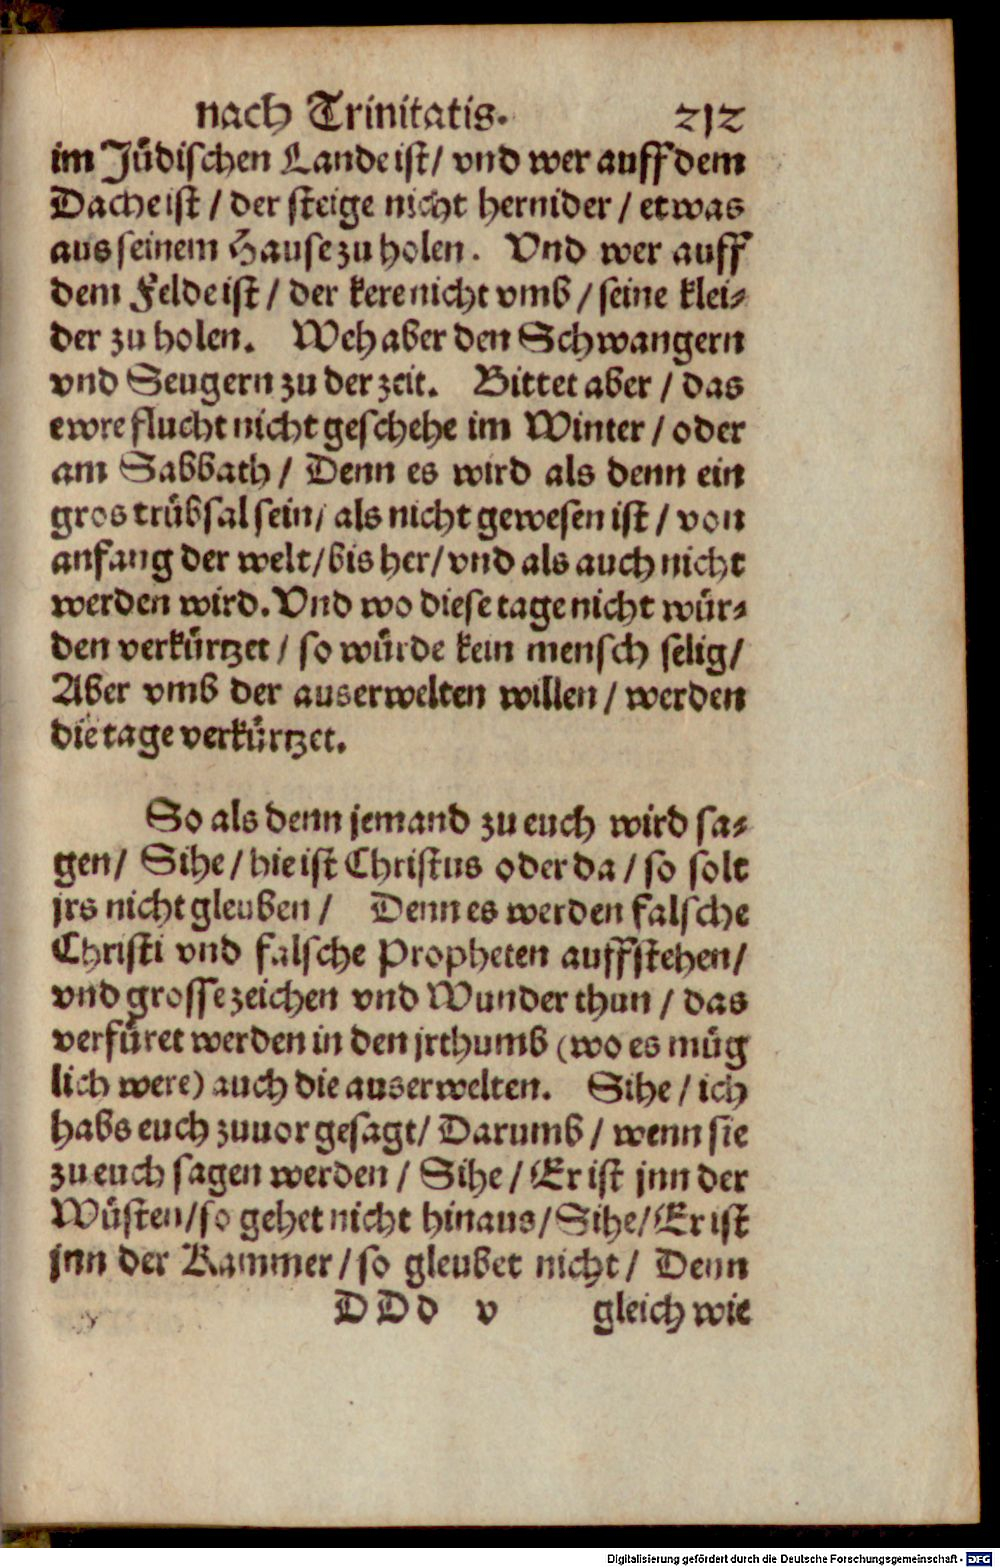 nach Trinitatis. 212
im Jüdischen Lande ist/ vnd wer auff dem
Dache ist / der steige nicht hernider / etwas
aus seinem Hause zu holen. Vnd wer auff
dem Felde ist / der kere nicht vmb / seine klei-
der zu holen. Weh aber den Schwangern
vnd Seugern zu der zeit. Bittet aber / das
ewre flucht nicht geschehe im Winter / oder
am Sabbath / Denn es wird als denn ein
gros trübsal sein/ als nicht gewesen ist / von
anfang der welt/bis her/vnd als auch nicht
werden wird. Vnd wo diese tage nicht wür-
den verkürtzet / so würde kein mensch selig/
Aber vmb der auserwelten willen / werden
die tage verkürtzet.
So als denn jemand zu euch wird sa-
gen/ Sihe / hie ist Christus oder da / so solt
jrs nicht gleuben / Denn es werden falsche
Christi vnd falsche Propheten auffstehen/
vnd grosse zeichen vnd Wunder thun / das
verfüret werden in den jrthumb (wo es müg
lich were) auch die auserwelten. Sihe / ich
habs euch zuuor gesagt/ Darumb / wenn sie
zu euch sagen werden / Sihe / Er ist jnn der
Wüsten/so gehet nicht hinaus/Sihe/Er ist
jnn der Kammer / so gleubet nicht / Denn
DDd v gleich wie
Digitalisierung gefördert durch die Deutsche Forschungsgemeinschaft - DFG